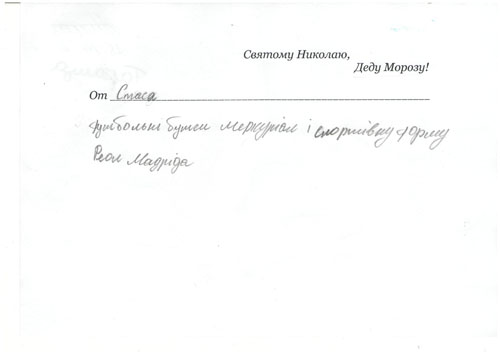 Святому Николаю,
Деду Морозу!
От Стаса
футбольні бутси меркуріал і спортівну форму
Реал Мадріда